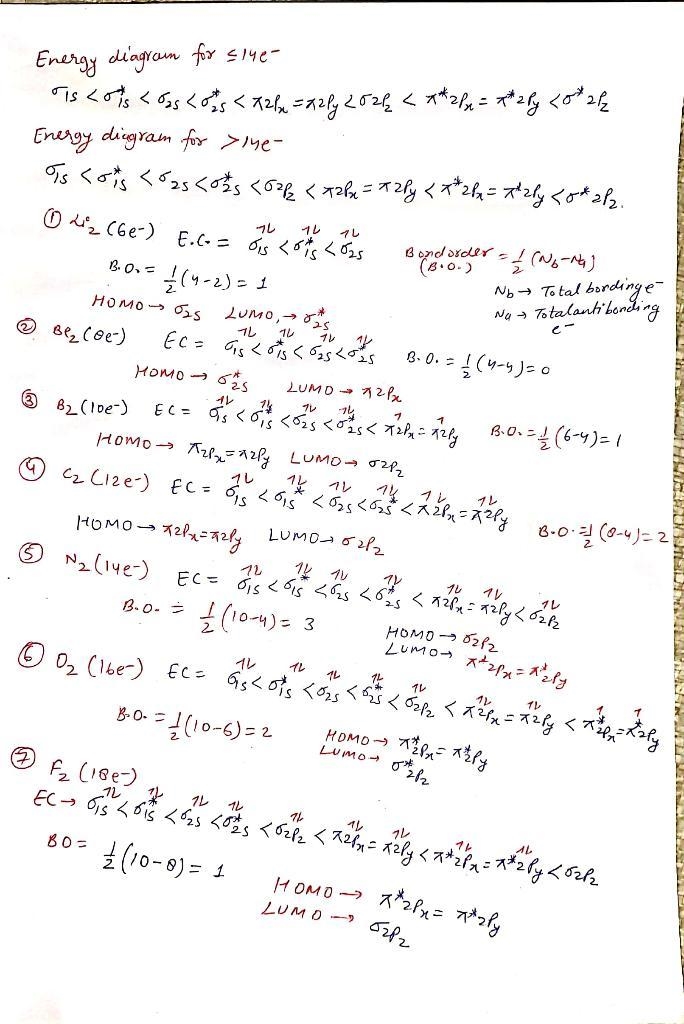 Energy diagram for ≤14e-
σ1s < σ*1s < σ2s < σ*2s < π2Px = π2Py < σ2Pz < π*2Px = π*2Py < σ*2Pz
Energy diagram for >14e-
σ1s < σ*1s < σ2s < σ*2s < σ2Pz < π2Px = π2Py < π*2Px = π*2Py < σ*2Pz.
① Li2 (6e-) E.C. = σ1s⥮ < σ*1s⥮ < σ2s⥮
Bond order = 1/2 (Nb-Na)
(B.O.)
B.O. = 1/2 (4-2) = 1
Nb → Total bonding e-
HOMO → σ2s LUMO, → σ*2s
Na → Total antibonding e-
② Be2 (8e-) EC = σ1s⥮ < σ*1s⥮ < σ2s⥮ < σ*2s⥮ B.O. = 1/2 (4-4) = 0
HOMO → σ*2s LUMO → π2Px
③ B2 (10e-) EC = σ1s⥮ < σ*1s⥮ < σ2s⥮ < σ*2s⥮ < π2Px↿ = π2Py↿ B.O. = 1/2 (6-4) = 1
HOMO → π2Px = π2Py LUMO → σ2Pz
④ C2 (12e-) EC = σ1s⥮ < σ1s*⥮ < σ2s⥮ < σ2s*⥮ < π2Px⥮ = π2Py⥮
B.O. = 1/2 (8-4) = 2
HOMO → π2Px = π2Py LUMO → σ2Pz
⑤ N2 (14e-) EC = σ1s⥮ < σ1s*⥮ < σ2s⥮ < σ*2s⥮ < π2Px⥮ = π2Py⥮ < σ2Pz⥮
B.O. = 1/2 (10-4) = 3
HOMO → σ2Pz
LUMO → π*2Px = π*2Py
⑥ O2 (16e-) EC = σ1s⥮ < σ*1s⥮ < σ2s⥮ < σ*2s⥮ < σ2Pz⥮ < π2Px⥮ = π2Py⥮ < π*2Px↿ = π*2Py↿
B.O. = 1/2 (10-6) = 2
HOMO → π*2Px = π*2Py
LUMO → σ*2Pz
⑦ F2 (18e-)
EC → σ1s⥮ < σ1s*⥮ < σ2s⥮ < σ*2s⥮ < σ2Pz⥮ < π2Px⥮ = π2Py⥮ < π*2Px⥮ = π*2Py⥮ < σ2Pz
BO = 1/2 (10-8) = 1
HOMO → π*2Px = π*2Py
LUMO → σ2Pz